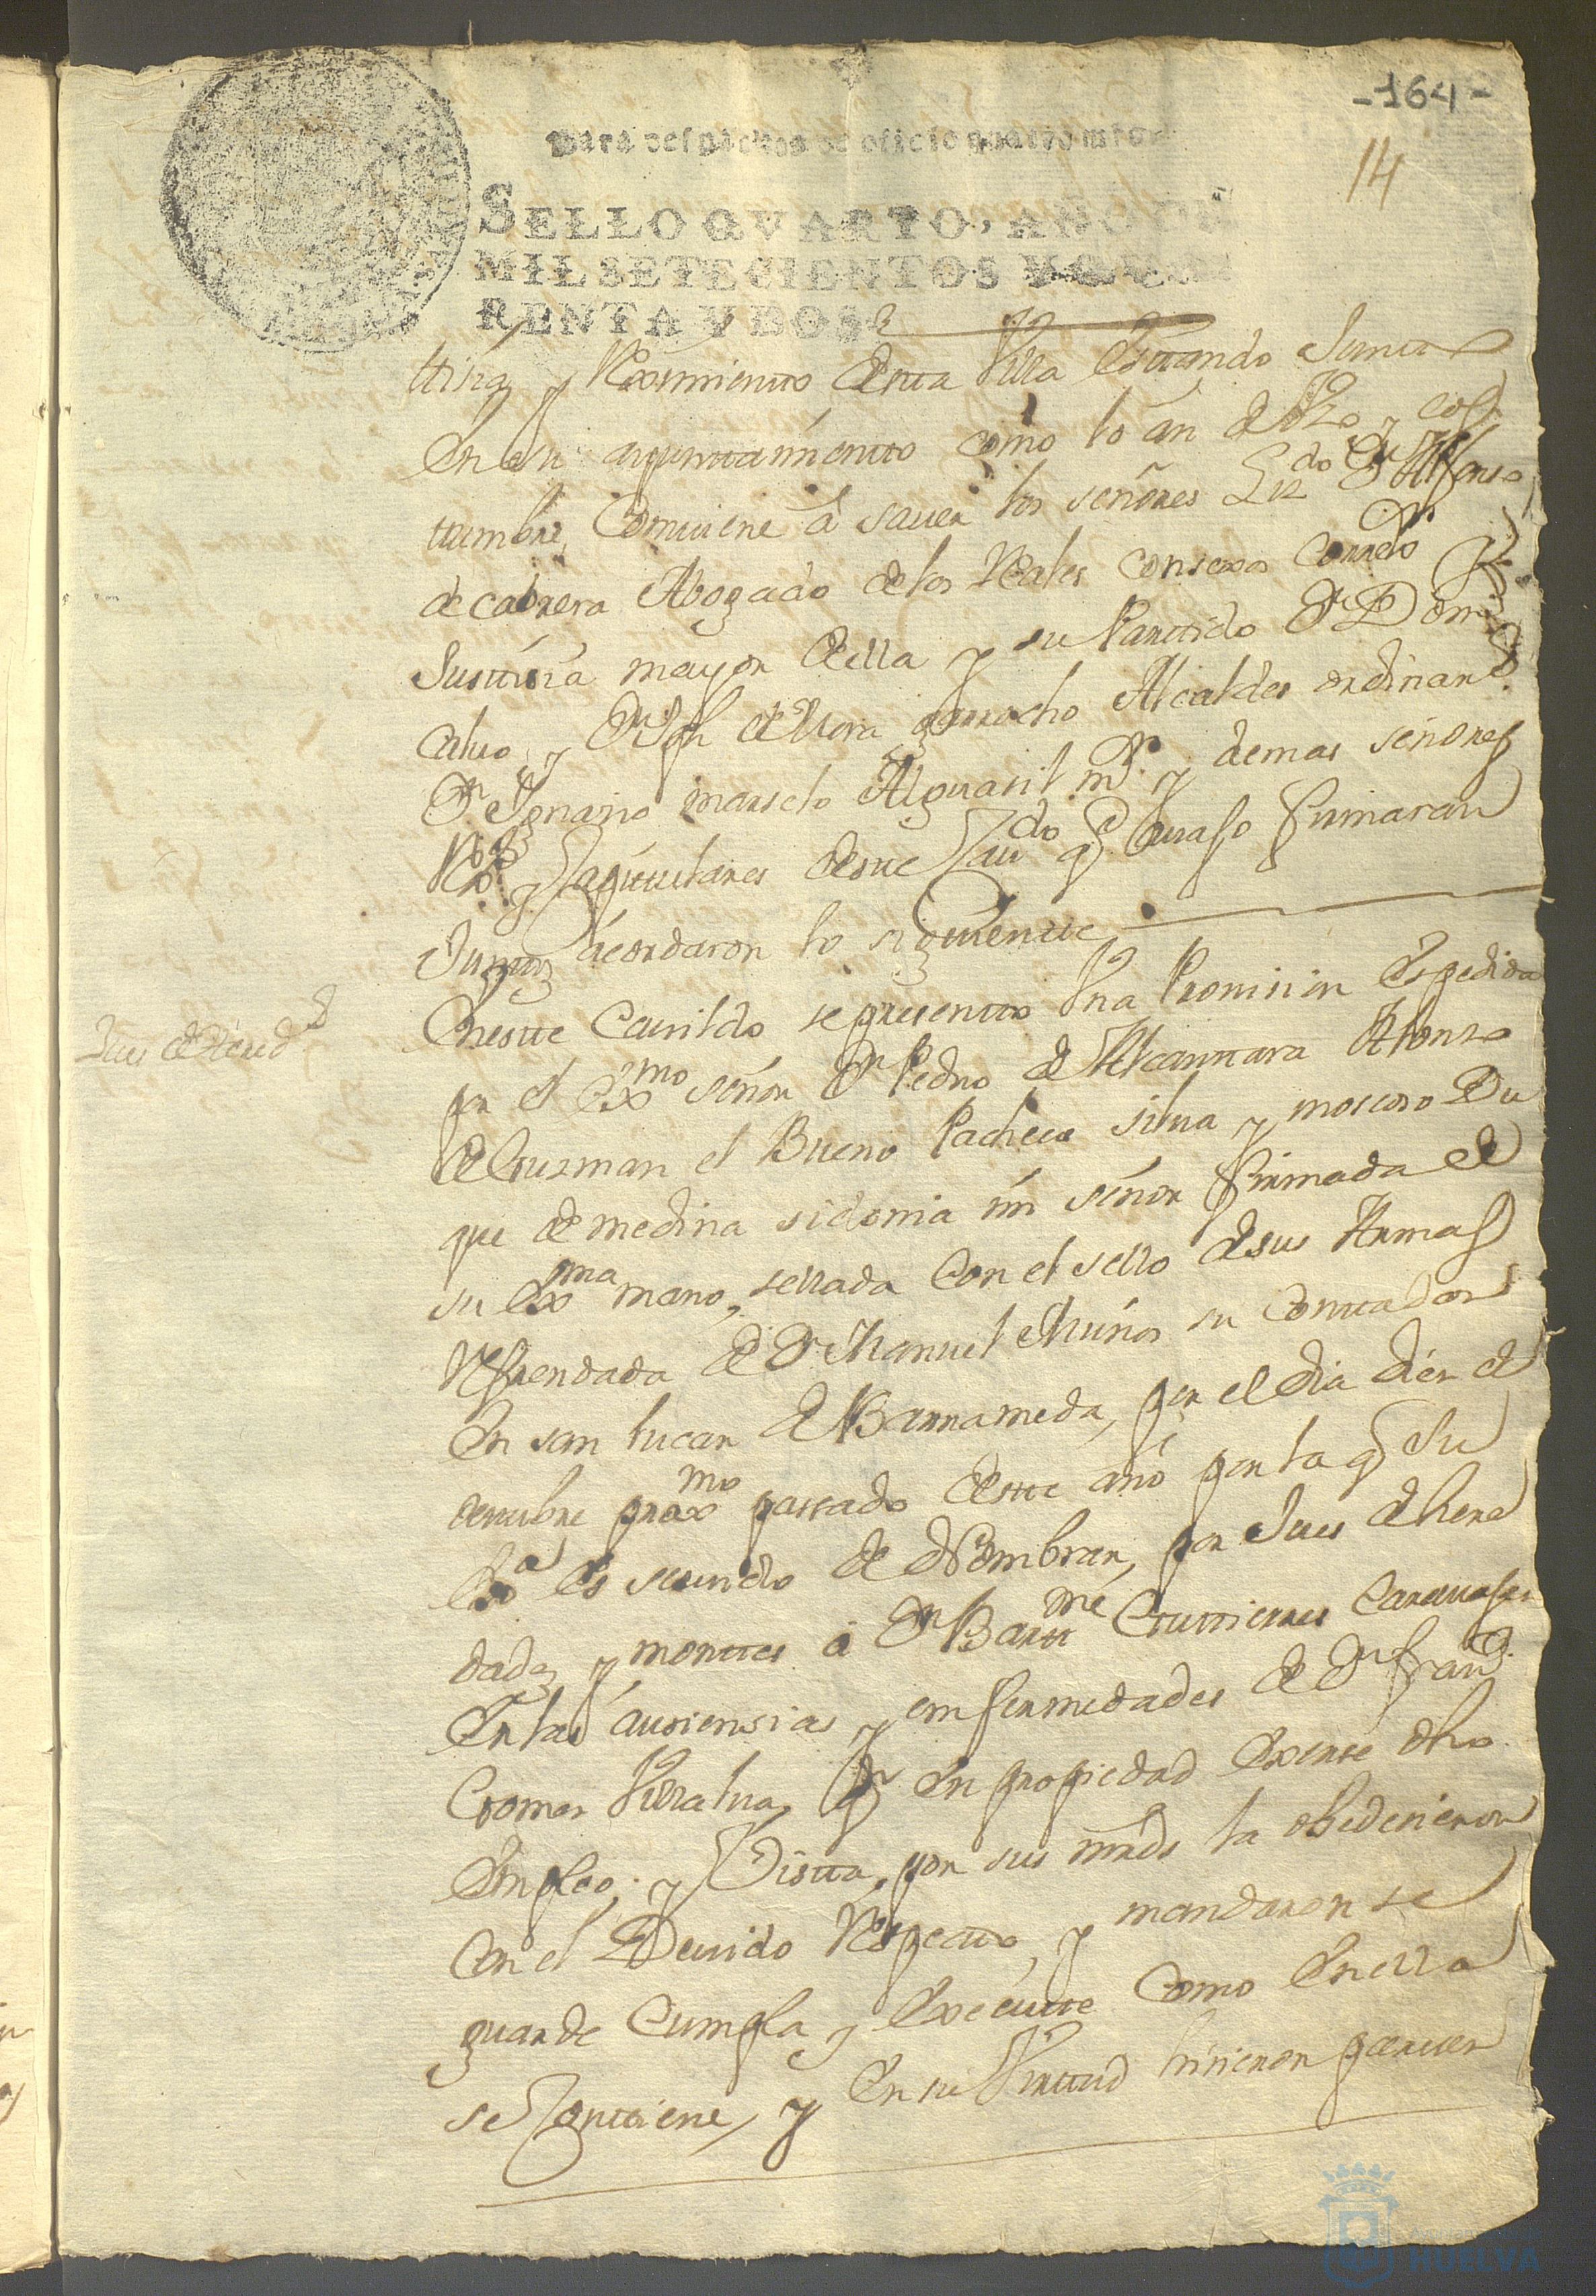 -164-
14
Para despachos de oficio quatro mrs.
SELLO QVARTO, AÑO DE
MIL SETECIENTOS Y QVA
RENTA Y DOS
tticia y Reximientto destta Villa esttando Junttos
en su ayunttamientto como lo an de Vzo y cos
tumbre, Combiene á saver los señores Lizdo Dn Alfonso
de cabrera Abogado de los Reales consexos Corredor
Justticia mayor della y su Parttido Dn Domº
calvo y Dn Jph de Mora garrocho Alcaldes ordinarios
Dn Ygnazio marselo Alguasil mr y demas señores
Capittulares deste Cavdo q avaxo firmaran
Junttos acordaron lo siguientte
Juez de Hered
Eneste Cavildo se presentto Vna Provision Espedida
por el Exmo señor Dn Pedro de Alcanttara Alonso
de Gusman el Bueno Pacheco silva y moscoso Du
que de medina sidonia mi señor firmada de
su Exma mano, sellada Con el sello de sus Armas
Refrendada de Dn Manuel Muños su Conttador
en san lucar de Barrameda, por el dia dies de
octtubre proxmo passado deste año por la q su
Exa es servido de Nombrar, por Jues de here
dades y monttes á Dn Barttme Guttierres Caravaxer
en las ausiensias y emfermedades de Dn Franco
Gomes Villalva, q en propiedad Exerse dho
Empleo; y Vistta por sus mrds la obedecieron
con el Devido Respectto y mandaron se
guarde Cumpla y Execute Como en ella
se Conttiene, y en su Virttud hisieron pareser
HUELVA